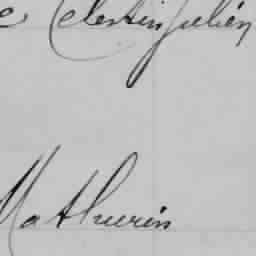 Celestin Julien
Mathurin